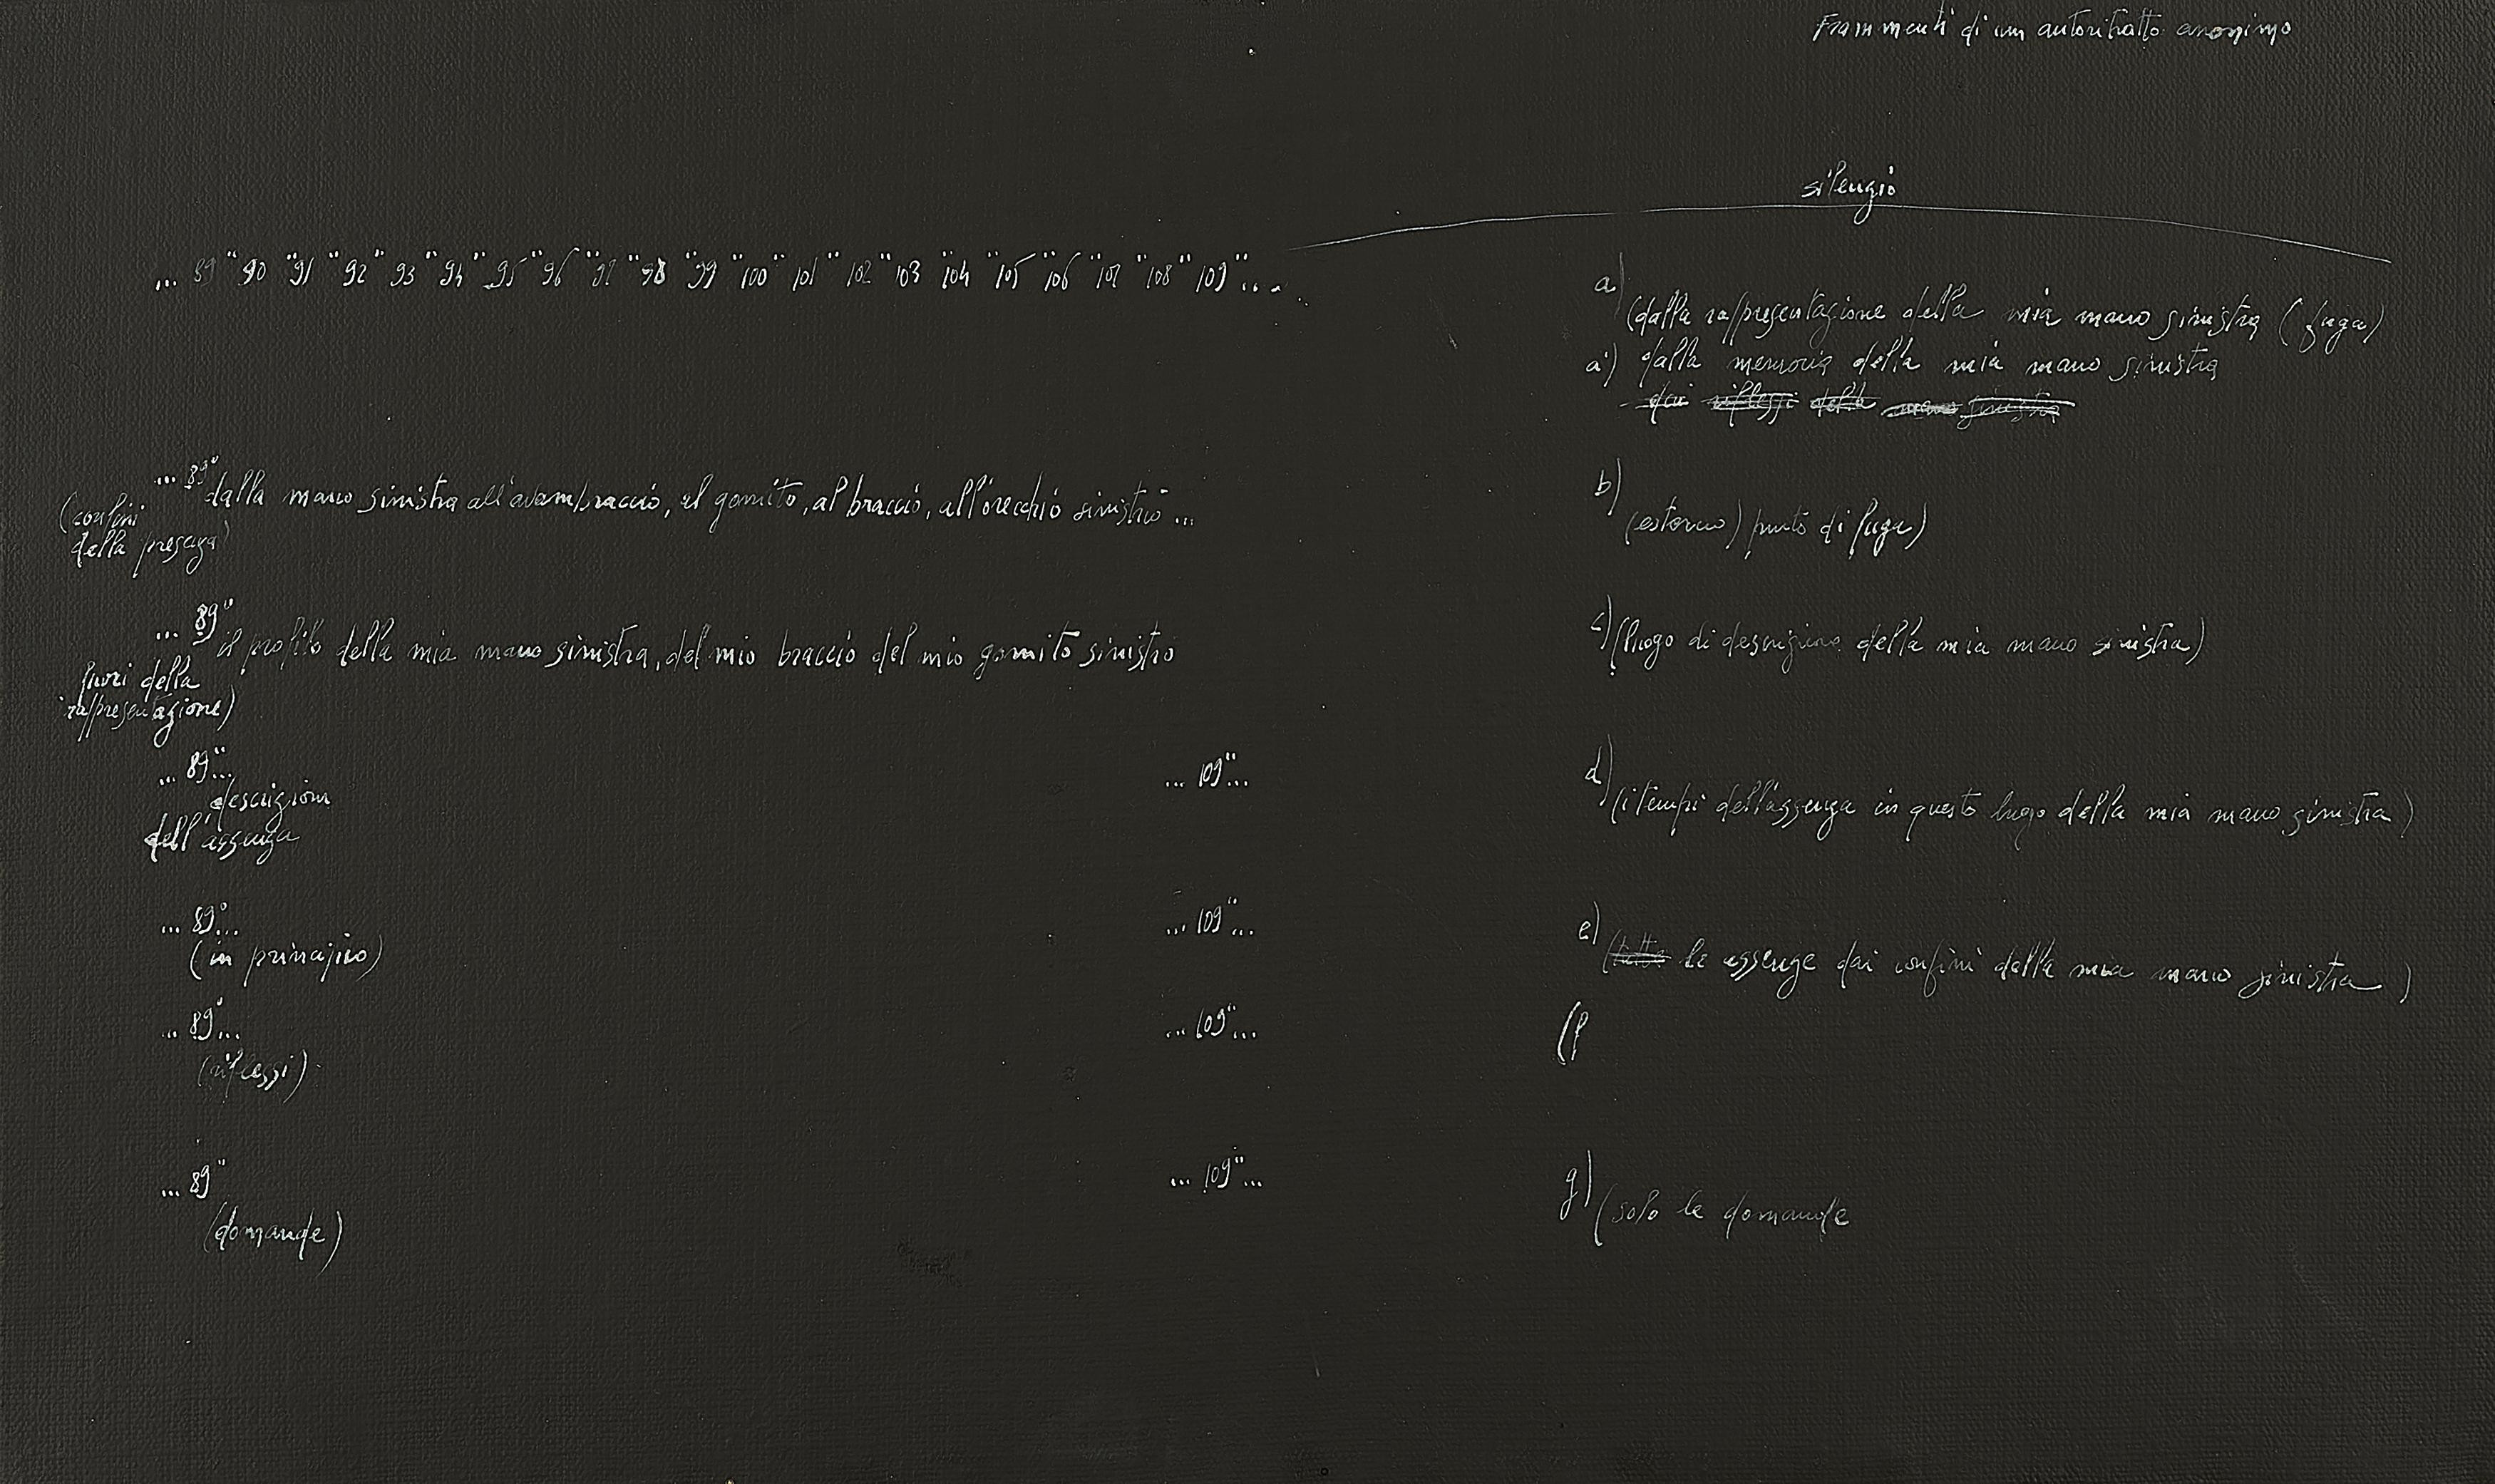 Frammenti di un autoritratto anonimo
silenzio
... 89 "90 "91 "92 "93 "94 "95 "96 "97 "98 "99 "100 "101 "102 "103 "104 "105 "106 "107 "108 "109 "...
a)
(dalla rappresentazione della mia mano sinistra (fuga)
a') dalla memoria della mia mano sinistra
dai riflessi della mano sinistra
... 89" dalla mano sinistra all'avambraccio, al gomito, al braccio, all'orecchio sinistro ...
(confini
della presenza)
b)
(esterno) punto di fuga)
... 89" il profilo della mia mano sinistra, del mio braccio del mio gomito sinistro
fuori della
rappresentazione)
c) (luogo di descrizione della mia mano sinistra)
... 89"...
descrizioni
dell'assenza
... 109"...
d) (i tempi dell'assenza in questo luogo della mia mano sinistra)
... 89"...
(in principio)
... 109"...
e) (tutte le assenze dai confini della mia mano sinistra)
... 89"...
(riflessi)
... 109"...
(f
... 89"
(domande)
... 109"...
g) (solo le domande